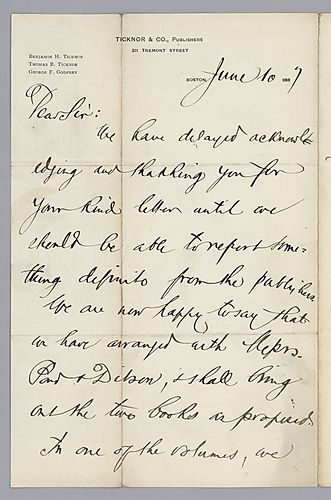 TICKNOR & CO., PUBLISHERS
211 TREMONT STREET
BENJAMIN H. TICKNOR
THOMAS B. TICKNOR
GEORGE F. GODFREY
BOSTON, June 10 1887
Dear Sir:
We have delayed acknowl-
edging and thanking you for
your kind letter until we
should be able to report some-
thing definite from the publishers.
We are now happy to say that
we have arranged with Messrs.
& shall bring
out the two books as proposed.
In one of the volumes, we